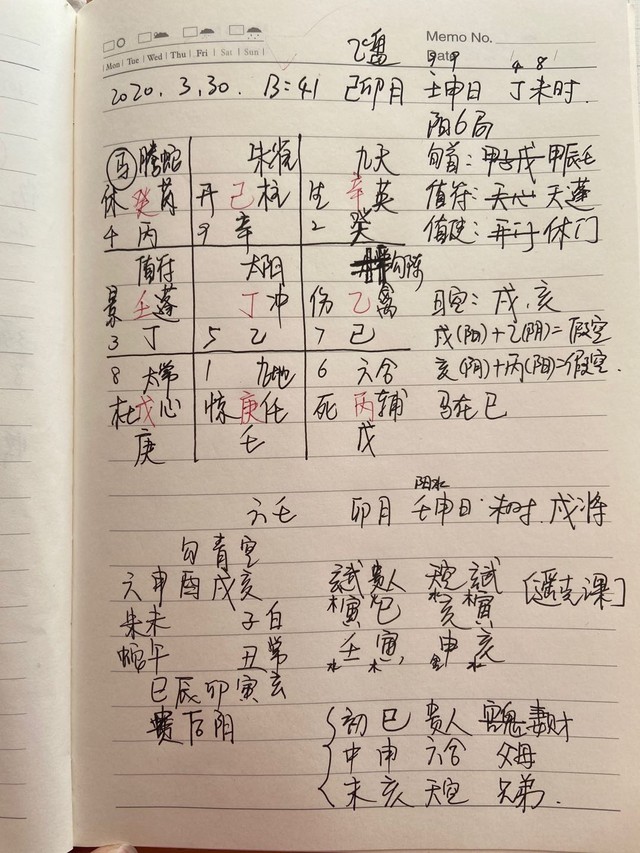 Memo No.
Mon Tue Wed Thu Fri Sat Sun
Date
飞盘
9 9 4 8
2020.3.30. 13:41 己卯月 壬申日 丁未时.
阳6局
马 腾蛇 朱雀 九天 旬首: 甲子戊 甲辰壬
休 癸芮 开 己柱 生 辛英 值符: 天心 天蓬
4 丙 9 辛 2 癸 值使: 开门 休门
值符 太阴 勾陈
景 壬蓬 丁冲 伤 乙禽 日空: 戌,亥
3 丁 5 乙 7 己 戌(阳)+乙(阴)=假空
8 太常 1 九地 6 六合 亥(阴)+丙(阳)=假空.
杜戊心 惊庚任 死 丙辅 马在巳
庚 壬 戊
阳水
六壬 卯月 壬申日 未时.戌将
勾青空
六申酉戌亥 玄武 贵人 天空 玄武 [遥克课]
朱未 子白 木寅 巳 水亥 木寅
蛇午 丑常 壬 寅 申 亥
水 木 金 水
巳辰卯寅玄
贵后阴
初 巳 贵人 妻财
中 申 六合 父母
末 亥 天空 兄弟.